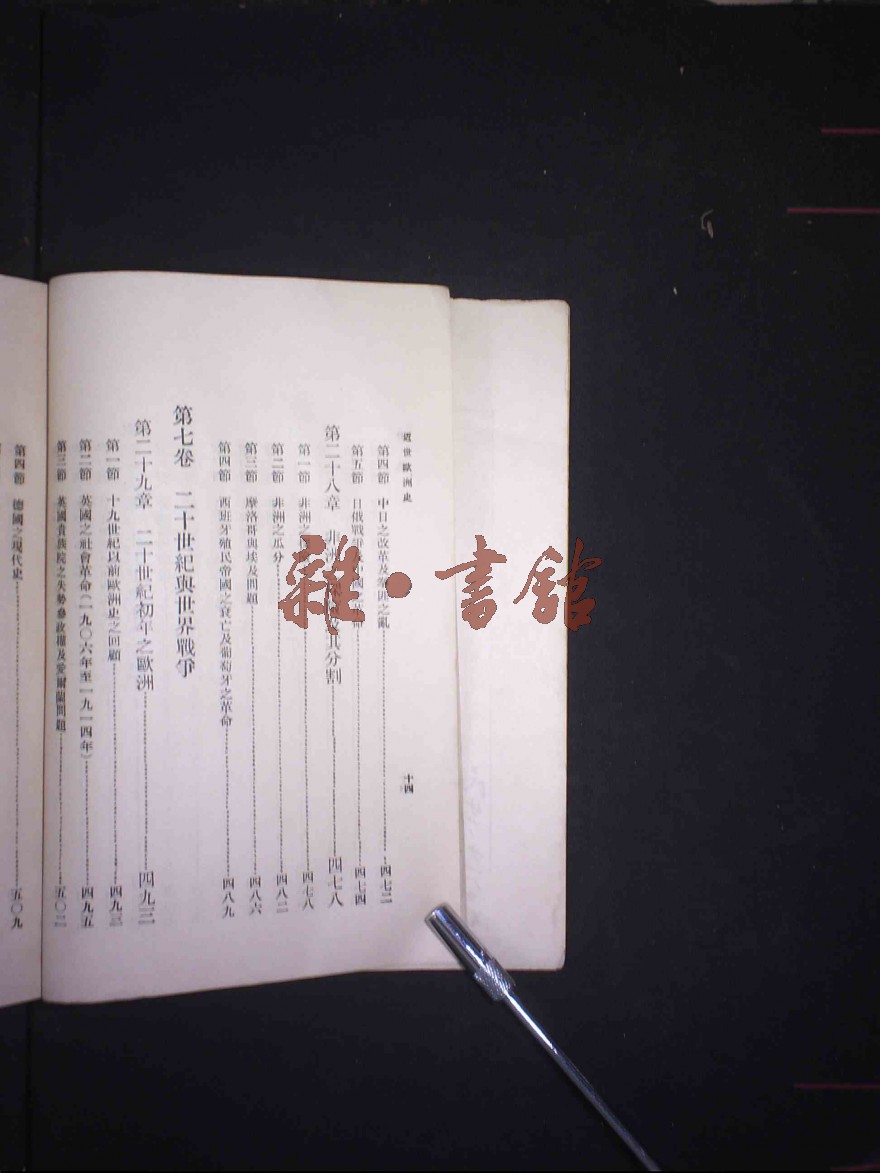 近世歐洲史
十四
第四節 中日之改革及拳匪之亂 四七二
第五節 日俄戰爭及 四七四
第二十八章 非洲 其分割 四七八
第一節 非洲之 四七八
第二節 非洲之瓜分 四八二
第三節 摩洛哥與埃及問題 四八六
第四節 西班牙殖民帝國之衰亡及葡萄牙之革命 四八九
第七卷 二十世紀與世界戰爭
第二十九章 二十世紀初年之歐洲 四九三
第一節 十九世紀以前歐洲史之回顧 四九三
第二節 英國之社會革命(一九〇六年至一九一四年) 四九五
第三節 英國貴族院之失勢參政權及愛爾蘭問題 五〇二
第四節 德國之現代史 五〇九
雜·書館